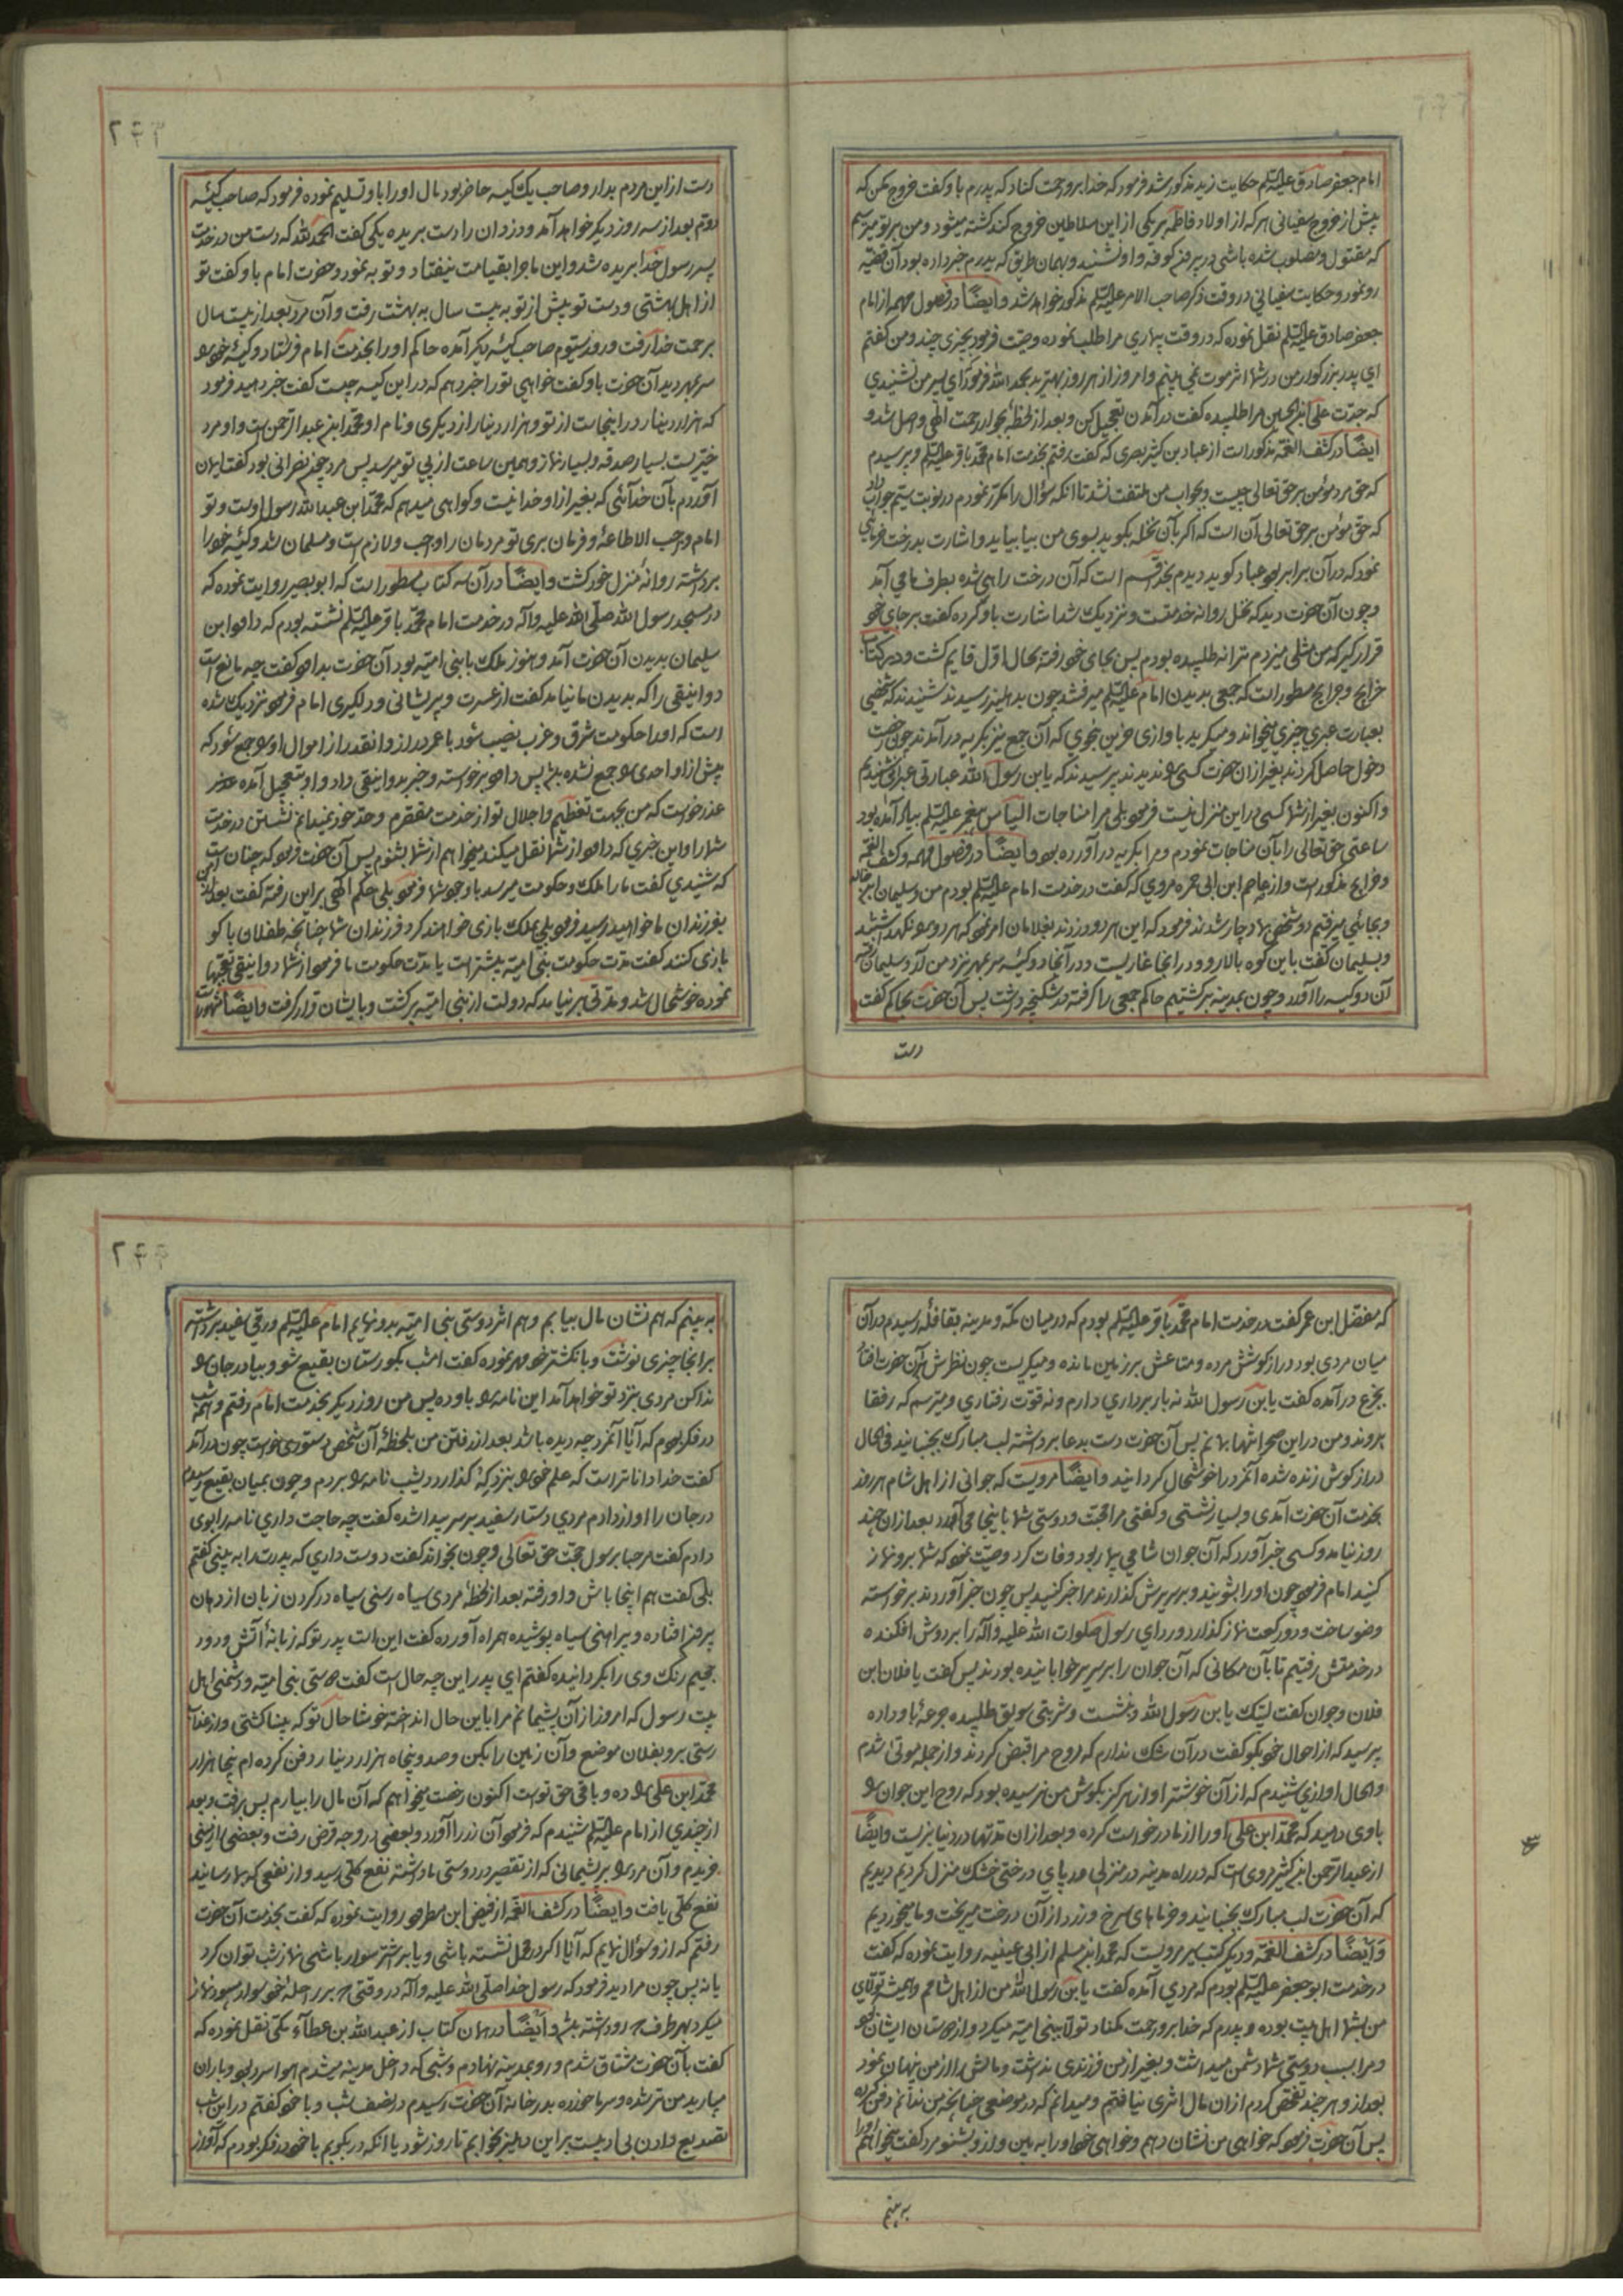 امام جعفر صادق علیه السلم حکایت زید مذکور شد فرمود که خدا برو رحمت کناد که پدرم باو کفت خروج مکن که
پیش از خروج سفیانی هر که از اولاد فاطمه بر یکی از این سلاطین خروج کند کشته میشود و من بر تو میترسم
که مقتول و مصلوب شده باشی در بیرون کوفه و او نشنید و بهمان طریق که پدرم خبر داده بود آن قضیه
رو نمود و حکایت سفیانی در وقت ذکر صاحب الامر علیه السلم مذکور خواهد شد وایضًا در فصول مهمه از امام
جعفر صادق علیه السلم نقل نموده که در وقت بیماری مرا طلب نموده وصیت فرمود بچیزی چند و من کفتم
ای پدر بزرکوار من در شما اثر موت نمی بینم و امروز از هر روز بهترید بحمد الله فرمود ای پسر من نشنیدی
که جدت علی ابن الحسین مرا طلبیده کفت در آمدن تعجیل کن و بعد از لحظه بجوار رحمت الهی واصل شد و
ایضًا در کشف الغمه مذکور است از عباد بن کثیر بصری که کفت رفتم بخدمت امام محمد باقر علیه السلم و پرسیدم
که حق مرد مؤمن بر حق تعالی چیست و بجواب من ملتفت نشد تا انکه سؤال را مکرر نمودم در نوبت سیم جواب داد
که حق مؤمن بر حق تعالی آن است که اکر بآن نخله بکوید بسوی من بیا بیاید و اشارت بدرخت خرمائی
نمود که در آن برابر بود عباد کوید دیدم بخدا قسم است که آن درخت راهی شده بطرف ما می آمد
و چون آن حضرت دید که نخل روانه خدمتست و نزدیک شد اشارت باو کرده کفت بر جای خود
قرار کیر که من مثلی میزدم ترا نه طلبیده بودم پس بجای خود رفته بحال اول قایم کشت و در کتاب
خرایج و جرایح مسطور است که جمعی بدیدن امام علیه السلم میرفتند چون بدهلیز رسیدند شنیدند که شخصی
بعبارت عبری چیزی میخواند و میکرید باوازی حزین بنحوی که آن جمع نیز بکریه در آمدند چون رخصت
دخول حاصل کردند بغیر از ان حضرت کسی را ندیدند پرسیدند که یابن رسول الله عبارتی عبرانی شنیدیم
و اکنون بغیر از شما کسی در این منزل نیست فرمود بلی مرا مناجات الیاس پیغمبر علیه السلم بیاد آمده بود
ساعتی حق تعالی را بآن مناجات نمودم و مرا بکریه در آورده بود وایضًا در فصول مهمه و کشف الغمه
و خرایج مذکور است و از عاصم ابن ابی حمزه مروی که کفت در خدمت امام علیه السلم بودم من و سلیمان ابن خالد
و بجائی میرفتیم دو شخص بما دچار شدند فرمود که این هر دو دزدند بغلامان امر نمود که هر دو را نکهداشتند
و بسلیمان کفت باین کوه بالا رو و در انجا غاریست و در آنجا دو کیسه سر بمهر نزد من آور سلیمان رفته
آن دو کیسه را آورد و چون بمدینه برکشتیم حاکم جمعی را کرفته در شکنجه داشت پس آن حضرت بحاکم کفت
دست
دست از این مردم بدار و صاحب یک کیسه حاضر بود مال او را باو تسلیم نموده فرمود که صاحب کیسهٔ
دوم بعد از سه روز دیکر خواهد آمد و دزدان را دست بریده یکی کفت الحمد لله که دست من در خدمت
پسر رسول خدا بریده شد و این ماجرا بقیامت نیفتاد و توبه نمود و حضرت امام باو کفت تو
از اهل بهشتی و دست تو پیش از تو به بیست سال به بهشت رفت و آن مرد بعد از بیست سال
برحمت خدا رفت و روز سیوم صاحب کیسهٔ دیکر آمده حاکم او را بخدمت امام فرستاد و کیسهٔ خود را
سر بمهر دید آن حضرت باو کفت خواهی تو را خبر دهم که در این کیسه چیست کفت خبر دهید فرمود
که هزار دینار در اینجاست از تو و هزار دینار از دیکری و نام او محمد ابن عبد الرحمن است و او مرد
خیریست بسیار صدقه و بسیار نماز و همین ساعت از پی تو میرسد پس مرد چون نصرانی بود کفت ایمان
آوردم بآن خدائی که بغیر از او خدا نیست و کواهی میدهم که محمد ابن عبد الله رسول اوست و تو
امام واجب الاطاعهٔ و فرمان بری تو مردمان را واجب و لازم است و مسلمان شد و کیسهٔ خود را
برداشته روانهٔ منزل خود کشت وایضًا در آن سه کتاب مسطور است که ابو بصیر روایت نموده که
در مسجد رسول الله صلی الله علیه وآله در خدمت امام محمد باقر علیه السلم نشسته بودم که داود ابن
سلیمان بدیدن آن حضرت آمد و هنوز ملک با بنی امیه بود آن حضرت بداود کفت چه مانع است
دوانیقی را که بدیدن ما نیامد کفت از عسرت و پریشانی و دلکیری امام فرمود نزدیک شده
است که او را حکومت شرق و غرب نصیب شود با عمر دراز و انقدر از اموال او را جمع شود که
پیش از او احدی را جمع نشده باشد پس داود برخواسته و خبر بدوانیقی داد و او بتعجیل آمده
عذر خواست که من بجهت تعظیم و اجلال تو از خدمت مقصرم و حد خود نمیدانم نشستن در خدمت
شما را و این خبری که داود از شما نقل میکند میخواهم از شما بشنوم پس آن حضرت فرمود که چنان است
که شنیدی کفت ما را ملک و حکومت میرسد با وجود شما فرمود بلی حکم الهی بر این رفته کفت بعد از من
بفرزندان ما خواهد رسید فرمود بلی بملک بازی خواهند کرد فرزندان شما چنانچه طفلان با کو
بازی کنند کفت مدت حکومت بنی امیه بیشتر است یا مدت حکومت ما فرمود از شما دوانیقی تعجبها
نموده خوشحال شد و مدتی بر نیامد که دولت از بنی امیه برکشت و بایشان قرار کرفت وایضًا مشهور است
که مفضل ابن عمر کفت در خدمت امام محمد باقر علیه السلم بودم که در میان مکه و مدینه بقافله رسیدم در آن
میان مردی بود دراز کوشش مرده و متاعش بر زمین مانده و میکریست چون نظرش بر آن حضرت افتاد
بجزع در آمده کفت یابن رسول الله نه بار برداری دارم و نه قوت رفتاری و میترسم که رفقا
بروند و من در این صحرا تنها بمانم پس آن حضرت دست بدعا برداشته لب مبارک بجنبانید فی الحال
دراز کوش زنده شده آنمرد را خوشحال کردانید وایضًا مرویست که جوانی از اهل شام هر روز
بخدمت آن حضرت آمدی و بسیار نشستی و کفتی مرا محبت و دوستی شما باینجا می آورد بعد از ان چند
روز نیامد و کسی خبر آورد که آن جوان شامی بیمار بود وفات کرد وصیت نمود که شما برو نماز
کنید امام فرمود چون او را بشویند و بر سریرش کذارند مرا خبر کنید پس چون خبر آوردند برخواسته
وضو ساخت و دو رکعت نماز کذارد و ردای رسول صلوات الله علیه وآله را بر دوش افکنده
در خدمتش رفتیم تا بآن مکانی که آن جوان را بر سریر خوابانیده بودند پس کفت یا فلان ابن
فلان و جوان کفت لبیک یابن رسول الله و نشست و شربتی سویق طلبیده جرعهٔ باو داده
پرسید که از احوال خود بکو کفت در آن شک ندارم که روح مرا قبض کردند و از جمله موتی شدم
و الحال اوازی شنیدم که از آن خوشتر اواز هرکز بکوش من نرسیده بود که روح این جوان را
باوی دهید که محمد ابن علی او را از ما درخواست کرده و بعد از ان مدتها در دنیا بزیست وایضًا
از عبد الرحمن ابن کثیر مروی است که در راه مدینه در منزلی در پای درختی خشک منزل کردیم دیدیم
که آن حضرت لب مبارک بجنبانید و خرماهای سرخ و زرد از آن درخت میریخت و ما میخوردیم
وایضًا در کشف الغمه و دیکر کتب سیر مرویست که محمد ابن مسلم از ابی عیینه روایت نموده که کفت
در خدمت ابو جعفر علیه السلم بودم که مردی آمده کفت یابن رسول الله من از اهل شامم و همیشه تولای
من بشما اهل بیت بوده و پدرم که خدا برو رحمت مکناد تولا ببنی امیه میکرد و از دوستان ایشان بود
و مرا بسبب دوستی شما دشمن میداشت و بغیر از من فرزندی نداشت و مالش را از من پنهان نمود
بعد از و هر چند تفحص کردم از ان مال اثری نیافتم و میدانم که در موضعی چنانچه من ندانم دفن کرده
پس آن حضرت فرمود که خواهی من نشان دهم و خواهی خود او را به بین و از و بشنو مرد کفت میخواهم او را
به بینم
به بینم که هم نشان مال بیابم و هم اثر دوستی بنی امیه بدو نمایم امام علیه السلم ورقی سفید برداشته
بر انجا چیزی نوشت و بانکشتر خود مهر نموده کفت امشب بکورستان بقیع شو و بیا درجان را
ندا کن مردی نزد تو خواهد آمد این نامه را باو ده پس من روز دیکر بخدمت امام رفتم و همه شب
در فکر بودم که آیا آنمرد چه دیده باشد بعد از رفتن من بلحظهٔ آن شخص دستوری خواست چون در آمد
کفت خدا داناتر است که علم خود را بنزد که کذارد دیشب نامه را بردم و چون بمیان بقیع رسیدم
درجان را اواز دادم مردی دستار سفید بر سر پیدا شده کفت چه حاجت داری نامه را بوی
دادم کفت مرحبا برسول حجت حق تعالی و چون بخواند کفت دوست داری که پدرت را به بینی کفتم
بلی کفت هم اینجا باش و او رفته بعد از لحظهٔ مردی سیاه رسنی سیاه در کردن زبان از دهان
بیرون افتاده و پیراهنی سیاه پوشیده همراه آورده کفت این است پدر تو که زبانهٔ آتش و دود
جحیم رنک وی را بکردانیده کفتم ای پدر این چه حال است کفت دوستی بنی امیه و دشمنی اهل
بیت رسول که امروز از آن پشیمانم مرا باین حال انداخته خوشا حال تو که بینا کشتی و از عذاب
رستی برو بفلان موضع و آن زمین را بکن و صد و پنجاه هزار دینار دفن کرده ام پنجاه هزار
محمد ابن علی را ده و باقی حق توست اکنون رخصت میخواهم که آن مال را بیارم پس رفت و بعد
از چندی از امام علیه السلم شنیدم که فرمود آن زر را آورد و بعضی در وجه قرض رفت و بعضی ارضی
خریدم و آن مرد را پشیمانی که از تقصیر در دوستی ما داشته نفع کلی رسید و از نفعی که بما رسانید
نفع کلی یافت وایضًا در کشف الغمه از فیض ابن مطر روایت نموده که کفت بخدمت آن حضرت
رفتم که از و سؤال نمایم که آیا اکر در محمل نشسته باشی و یا بر شتر سوار باشی نماز شب توان کرد
یا نه پس چون مرا دید فرمود که رسول خدا صلی الله علیه وآله در وقتی که بر راحلهٔ خود سوار میبود نماز
میکرد بهر طرف که رو داشته باشد وایضًا در همان کتاب از عبد الله بن عطاء مکی نقل نموده که
کفت بآن حضرت مشتاق شدم و رو بمدینه نهادم و شبی که داخل مدینه میشدم هوا سرد بود و باران
میبارید من تر شده و سرما خورده بدر خانهٔ آن حضرت رسیدم در نصف شب و با خود کفتم در این شب
تصدیع دادن بی ادبیست بر این دهلیز بخوابم تا روز شود یا انکه در بکوبم با خود در فکر بودم که آواز